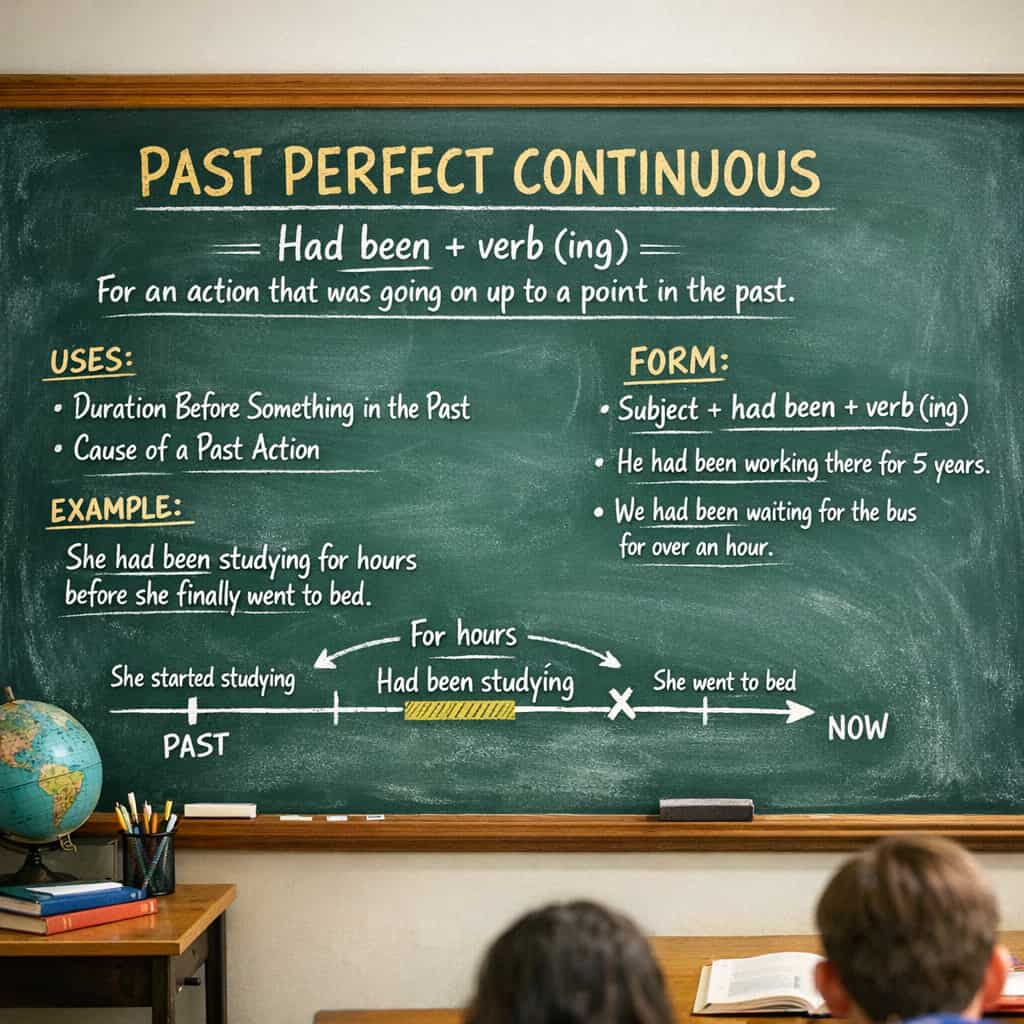 PAST PERFECT CONTINUOUS
Had been + verb (ing)
For an action that was going on up to a point in the past.
USES:
• Duration Before Something in the Past
• Cause of a Past Action
EXAMPLE:
She had been studying for hours
before she finally went to bed.
FORM:
• Subject + had been + verb (ing)
• He had been working there for 5 years.
• We had been waiting for the bus
for over an hour.
For hours
She started studying
Had been studying
She went to bed
PAST
NOW